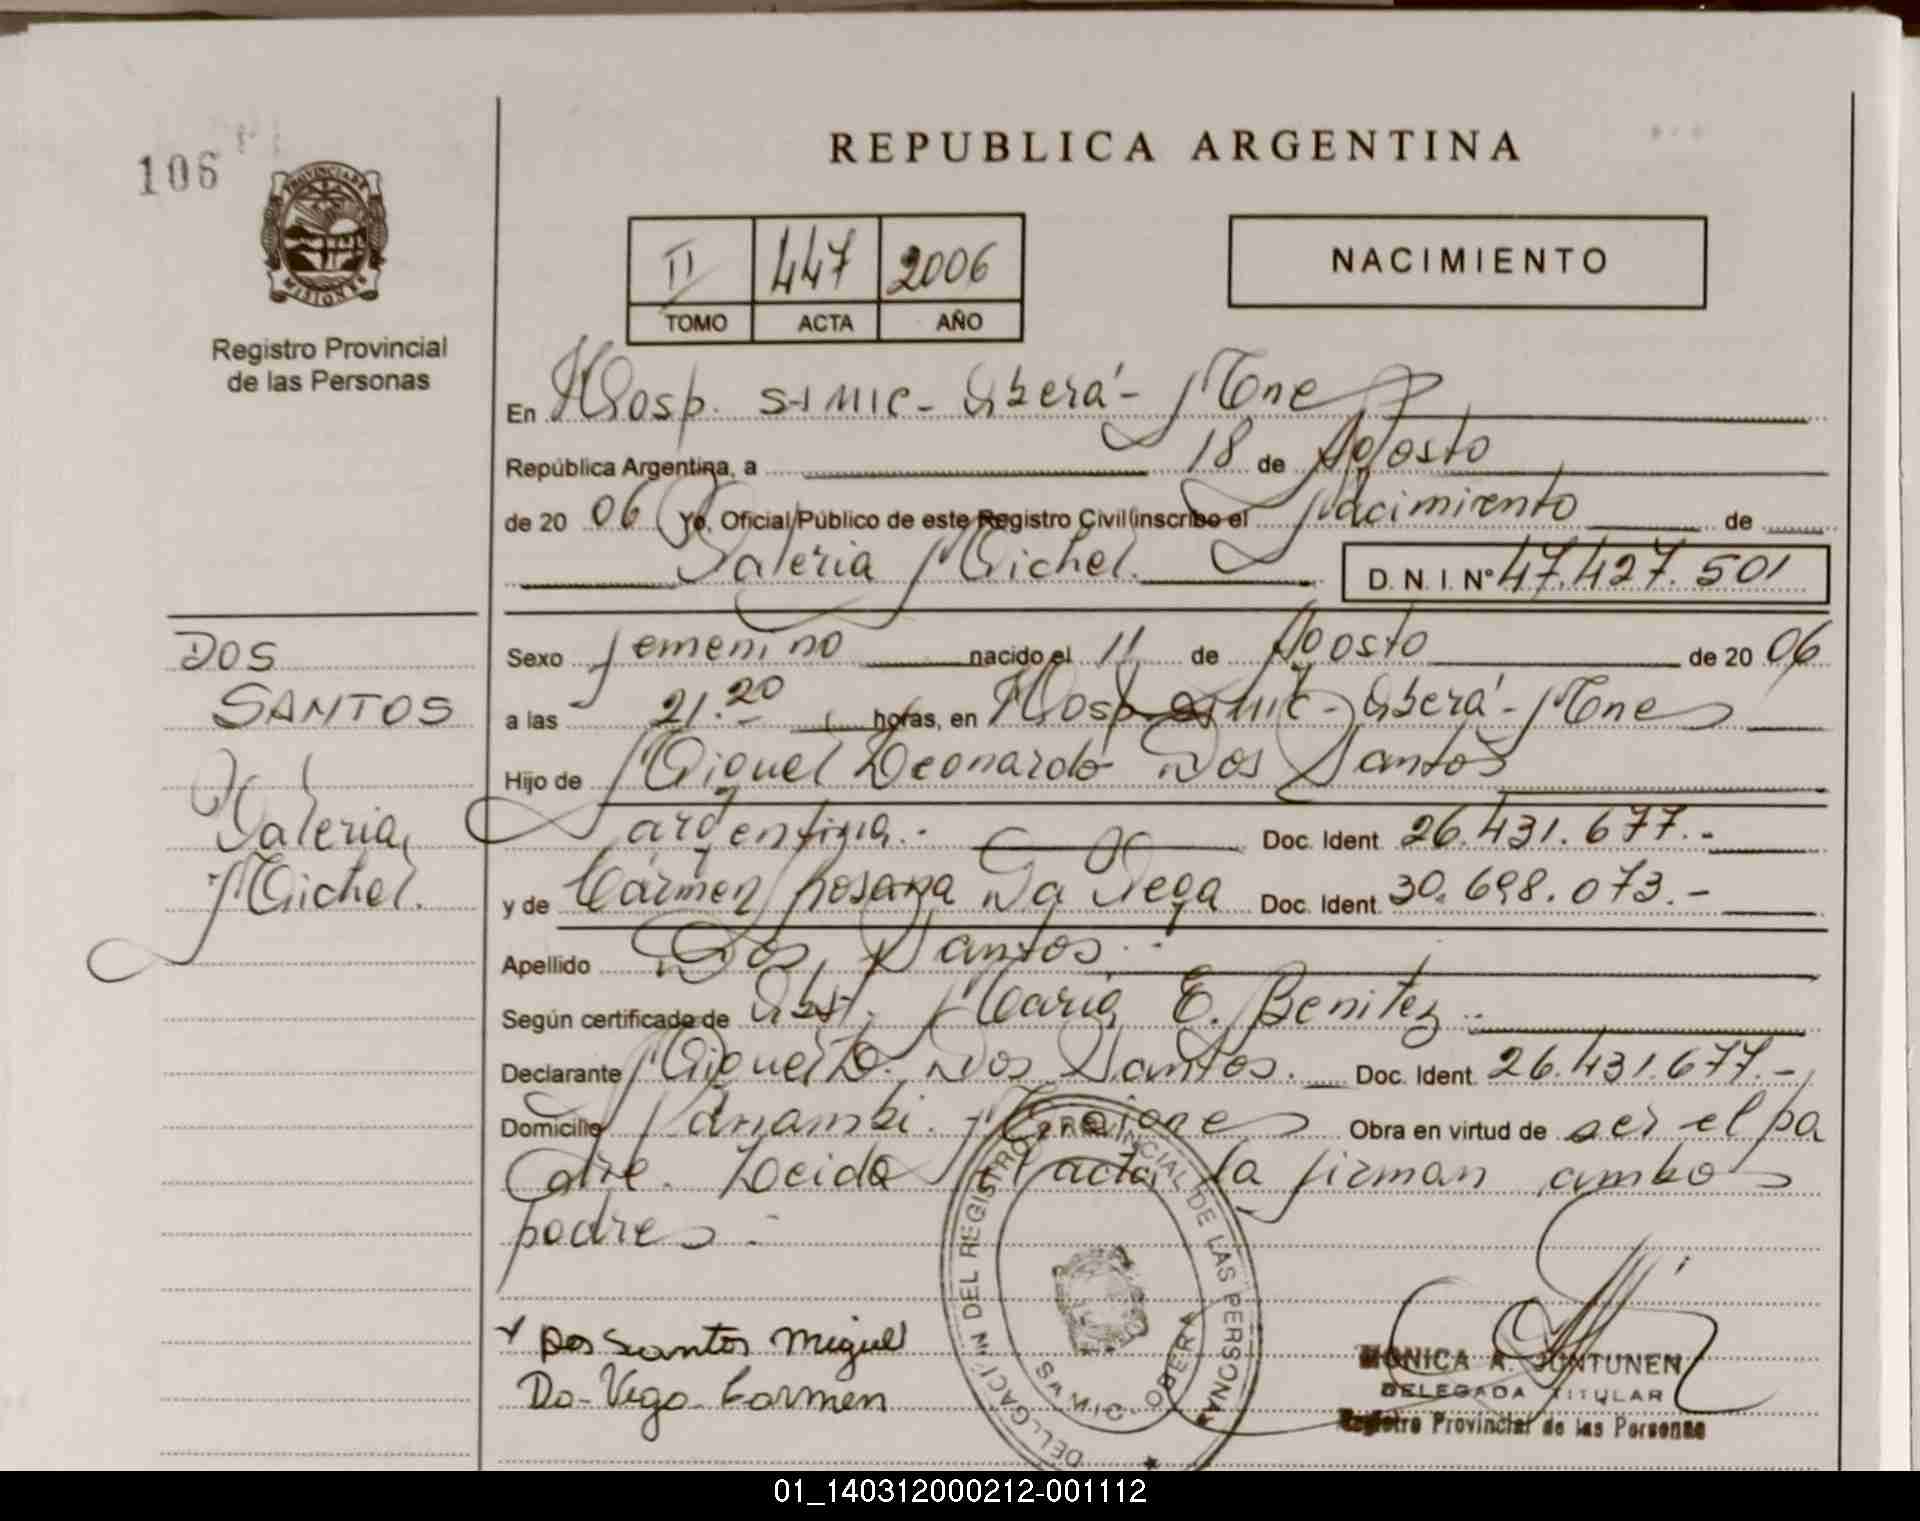 106
REPUBLICA ARGENTINA
PROVINCIA DE
MISIONES
Registro Provincial
de las Personas
II 447 2006
TOMO ACTA AÑO
NACIMIENTO
En Hosp. SAMIC - Oberá - Mnes
República Argentina, a 18 de Agosto
de 20 06 Yo, Oficial Público de este Registro Civil inscribo el Nacimiento de
Valeria Michel. D. N. I. Nº 47.427.501
DOS
SANTOS
Valeria
Michel.
Sexo femenino nacido el 11 de Agosto de 20 06
a las 21.20 horas, en Hosp. Samic - Oberá - Mnes
Hijo de Miguel Leonardo Dos Santos
argentina.- Doc. Ident. 26.431.677.-
y de Carmen Rosana Da Vega Doc. Ident. 30.698.073.-
Apellido Dos Santos.-
Según certificado de Obst. Maria E. Benitez.
Declarante Miguel L. Dos Santos. Doc. Ident. 26.431.677.-
Domicilio Panambi. Misiones Obra en virtud de ser el pa
dre. Leida el acta, la firman ambos
padres.-
Dos Santos Miguel
Da-Vega Carmen
DELEGACIÓN DEL REGISTRO PROVINCIAL DE LAS PERSONAS
SAMIC - OBERA
MONICA A. JUNTUNEN
DELEGADA TITULAR
Registro Provincial de las Personas
01_140312000212-001112